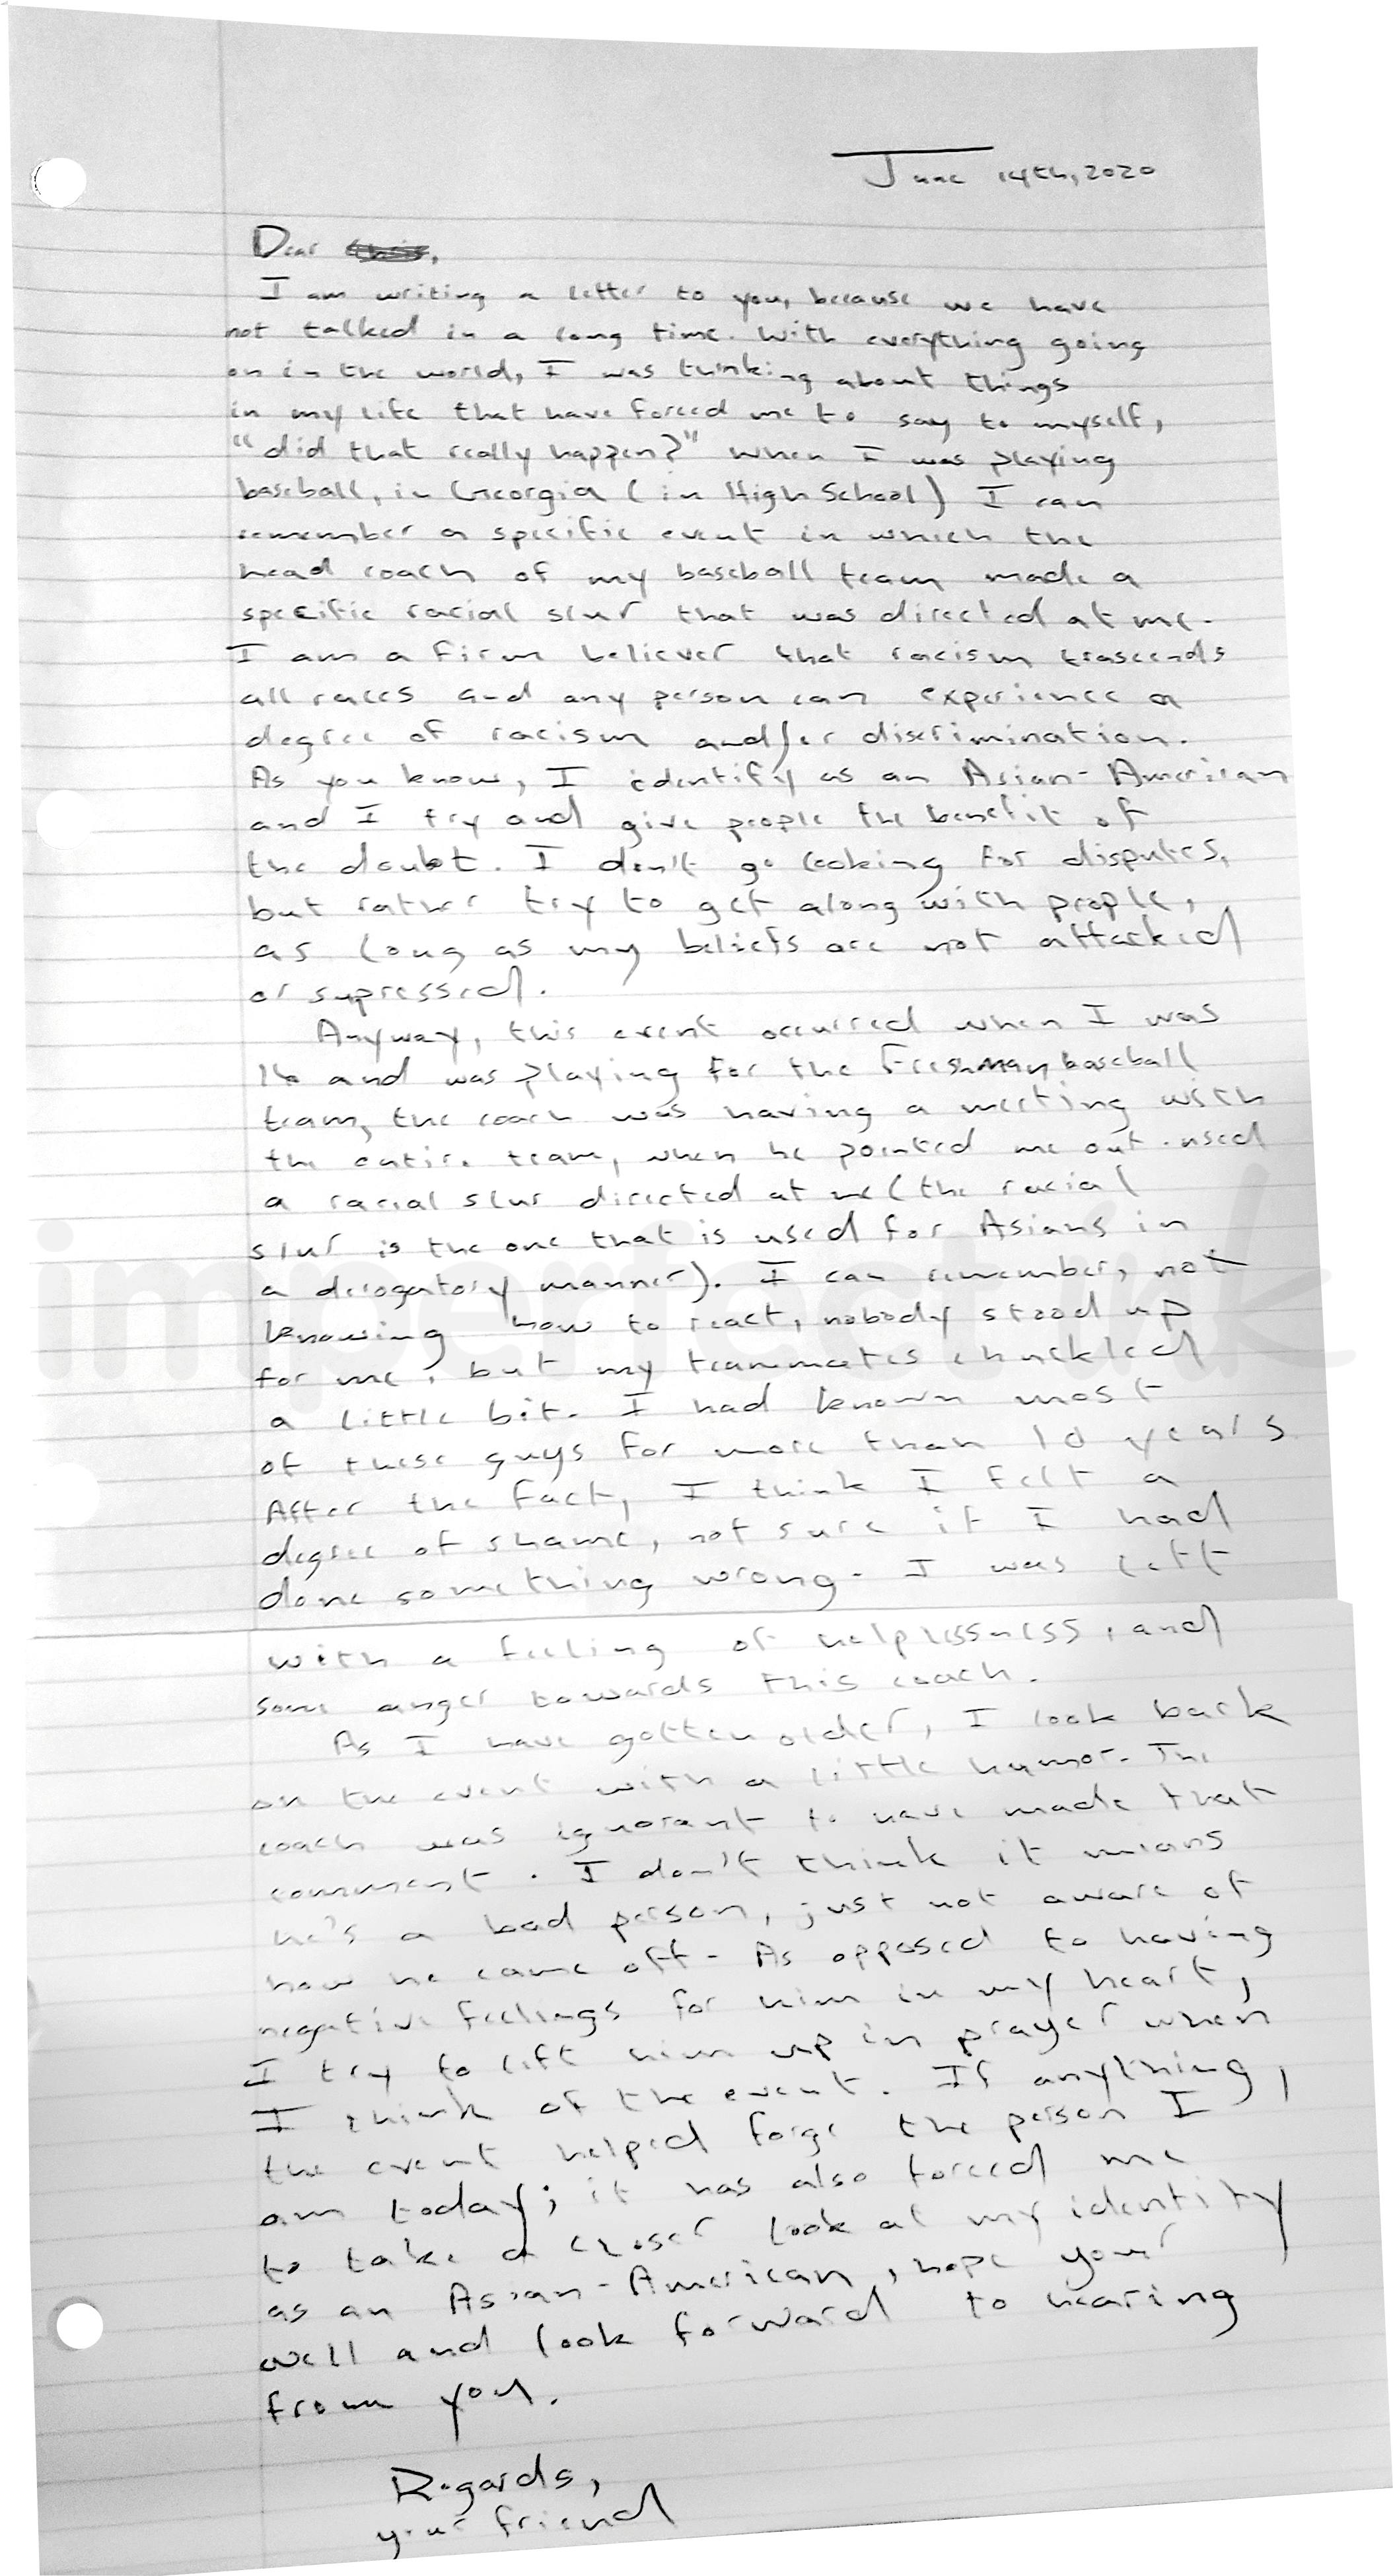 June 14th, 2020
Dear
I am writing a letter to you, because we have
not talked in a long time. With everything going
on in the world, I was thinking about things
in my life that have forced me to say to myself,
"did that really happen?" When I was playing
baseball, in Georgia (in High School) I can
remember a specific event in which the
head coach of my baseball team made a
specific racial slur that was directed at me.
I am a firm believer that racism trascends
all races and any person can experience a
degree of racism and/or discrimination.
As you know, I identify as an Asian-American
and I try and give people the benefit of
the doubt. I don't go looking for disputes,
but rather try to get along with people,
as long as my beliefs are not attacked
or supressed.
Anyway, this event occurred when I was
16 and was playing for the Freshman baseball
team, the coach was having a meeting with
the entire team, when he pointed me out. used
a racial slur directed at me (the racial
slur is the one that is used for Asians in
a derogatory manner). I can remember, not
knowing how to react, nobody stood up
for me, but my teammates chuckled
a little bit. I had known most
of these guys for more than 10 years
After the fact, I think I felt a
degree of shame, not sure if I had
done something wrong. I was left
with a feeling of helplessness, and
some anger towards this coach.
As I have gotten older, I look back
on the event with a little humor. The
coach was ignorant to have made that
comment. I don't think it means
he's a bad person, just not aware of
how he came off. As opposed to having
negative feelings for him in my heart,
I try to lift him up in prayer when
I think of the event. If anything,
the event helped forge the person I
am today; it has also forced me
to take a closer look at my identity
as an Asian-American, hope your
well and look forward to hearing
from you.
Regards,
your friend
imperfect ink